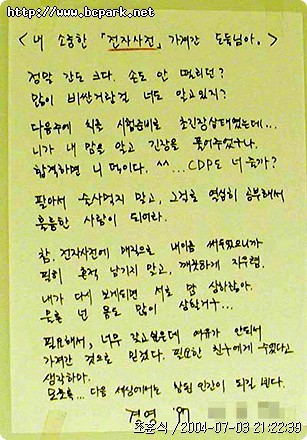 http://www.bcpark.net
< 내 소중한 「전자사전」 가져간 도둑님아. >
정말 간도 크다. 손도 안 떨리던?
많이 비싼거란걸 너도 알고있지?
다음주에 치를 시험준비로 초긴장상태였는데...
니가 내 맘을 알고 긴장을 풀어주었구나.
합격하면 니 덕이다. ^^ ... CDP도 너 줄까?
팔아서 술사먹지 말고, 그걸로 열심히 공부해서
훌륭한 사람이 되어라.
참. 전자사전에 매직으로 내이름 써두었으니까
픽히 흔적 남기지 말고, 깨끗하게 지우렴.
내가 다시 보게되면 서로 맘 상하잖아.
물론 넌 몸도 많이 상할거구...
필요해서, 너무 갖고싶은데 여유가 안되서
가져간 것으로 믿겠다. 필요한 친구에게 주었다고
생각하마.
모쪼록... 다음 세상에서는 참된 인간이 되길 빈다.
경영 '97
조윤식 /2004-07-03 21:22:39